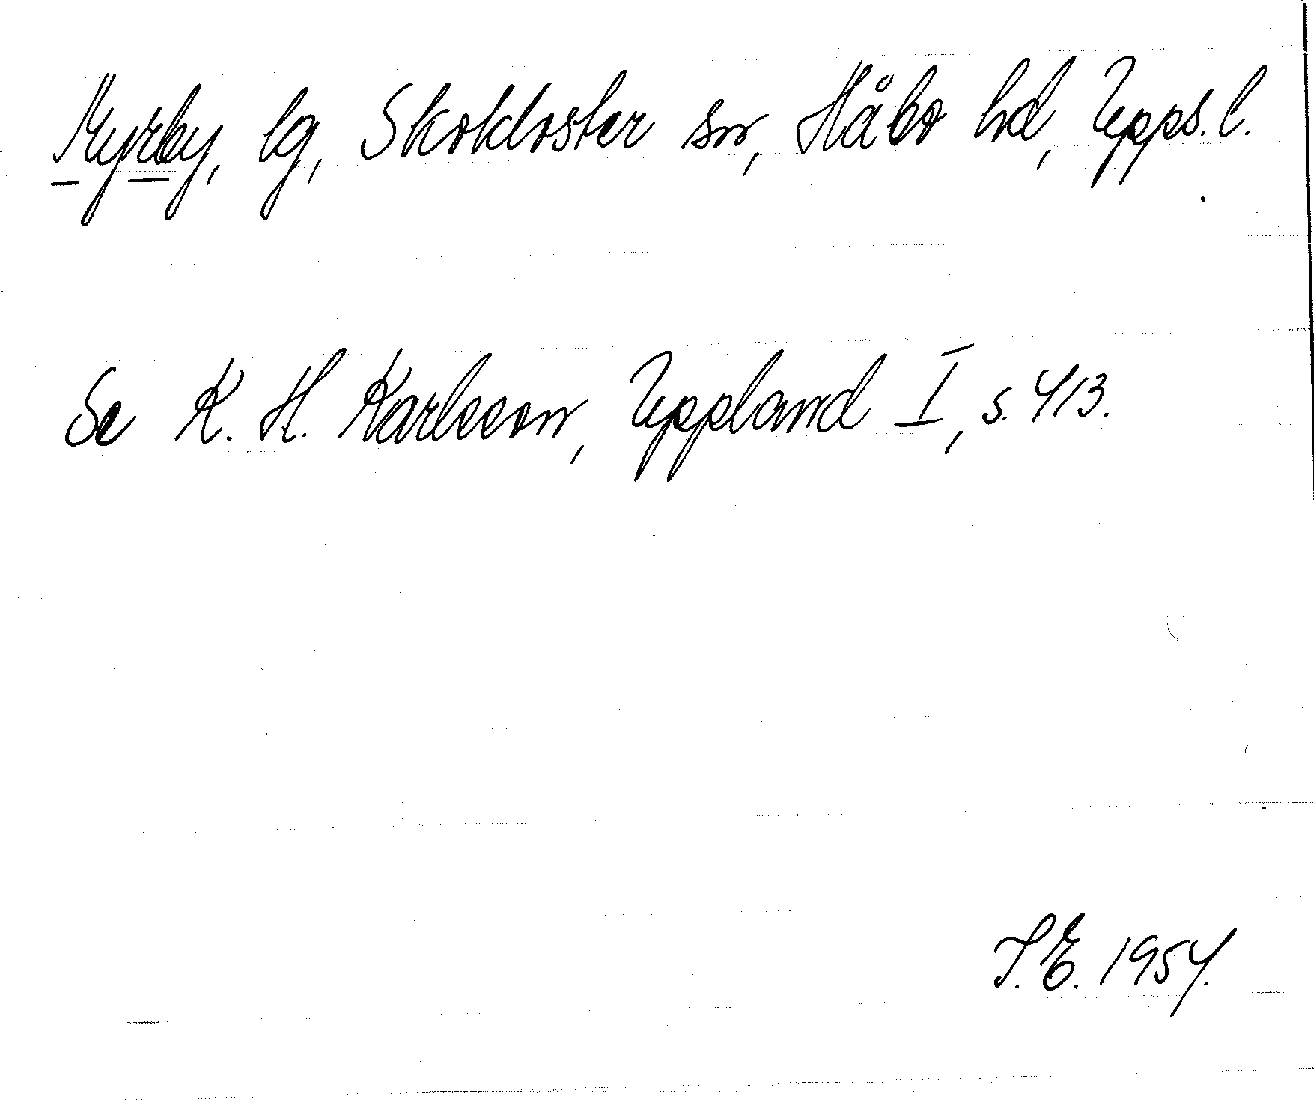 Myrby, lg, Skokloster sn, Håbo hd, Upps. l.
Se K. H. Karlsson, Uppland I, s. 413.
I. E. 1954.